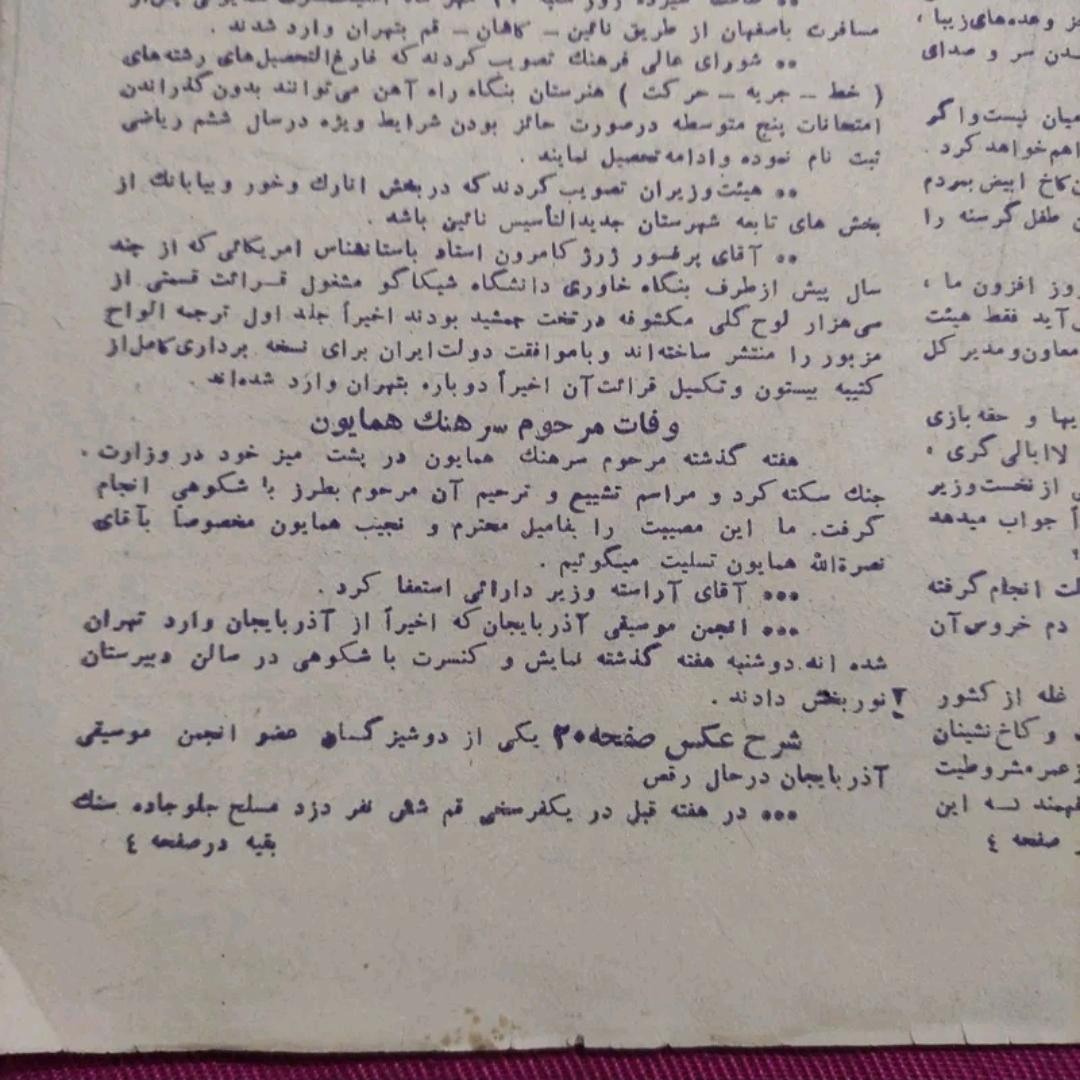 مسافرت باصفهان از طریق نائین ـ کاشان ـ قم بتهران وارد شدند .
•• شورای عالی فرهنك تصویب کردند که فارغ‌التحصیل‌های رشته‌های
( خط ـ جریه ـ حرکت ) هنرستان بنگاه راه آهن می‌توانند بدون گذراندن
امتحانات پنج متوسطه درصورت حائز بودن شرایط ویژه درسال ششم ریاضی
ثبت نام نموده وادامه تحصیل نمایند .
•• هیئت وزیران تصویب کردند که دربخش انارك وخور وبیابانك از
بخش های تابعه شهرستان جدیدالتأسیس نائین باشد .
•• آقای پرفسور ژرژ کامرون استاد باستانشناس امریکائی که از چند
سال پیش ازطرف بنگاه خاوری دانشگاه شیکاگو مشغول قرائت قسمتی از
سی‌هزار لوح گلی مکشوفه درتخت جمشید بودند اخیراً جلد اول ترجمه الواح
مزبور را منتشر ساخته‌اند وباموافقت دولت‌ایران برای نسخه برداری کامل‌از
کتیبه بیستون وتکمیل قرائت آن اخیراً دوباره بتهران وارد شده‌اند .
وفات مرحوم سرهنك همایون
هفته گذشته مرحوم سرهنك همایون در پشت میز خود در وزارت .
جنك سکته کرد و مراسم تشییع و ترحیم آن مرحوم بطرز با شکوهی انجام
گرفت. ما این مصیبت را بفامیل محترم و نجیب همایون مخصوصاً بآقای
نصرةالله همایون تسلیت میگوئیم .
••• آقای آراسته وزیر دارائی استعفا کرد .
••• انجمن موسیقی آذربایجان که اخیراً از آذربایجان وارد تهران
شده اند.دوشنبه هفته گذشته نمایش و کنسرت با شکوهی در سالن دبیرستان
نوربخش دادند .
شرح عکس صفحه ۲۰ یکی از دوشیزگان عضو انجمن موسیقی
آذربایجان درحال رقص
••• در هفته قبل در یکفرسخی قم شش نفر دزد مسلح جلو جاده سنك
بقیه درصفحه ٤
وعده‌های‌زیبا ،
سر و صدای
میان نیست‌واگر
خواهد کرد .
کاخ ابیض بمردم
طفل گرسنه را
روز افزون ما ،
آید فقط هیئت
معاون‌ومدیر کل
و حقه بازی
لاابالی گری ،
از نخست‌وزیر
جواب میدهد
انجام گرفته
دم خروس‌آن
غله از کشور
و کاخ نشینان
مشروطیت
این
صفحه ٤